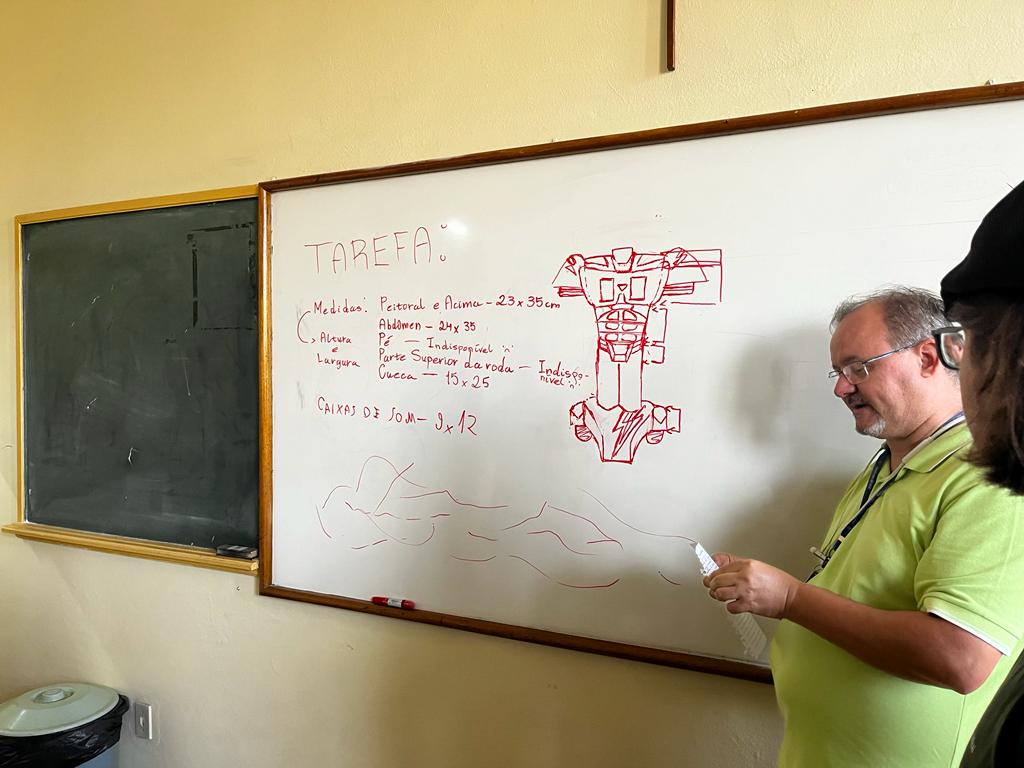 TAREFA:
Medidas: Peitoral e Acima - 23 x 35 cm
Abdômen - 24 x 35
Altura e Largura
Pé - Indisponível "n"
Parte Superior da roda - Indisponível "n".
Cueca - 15 x 25
CAIXAS DE SOM - 9 x 12